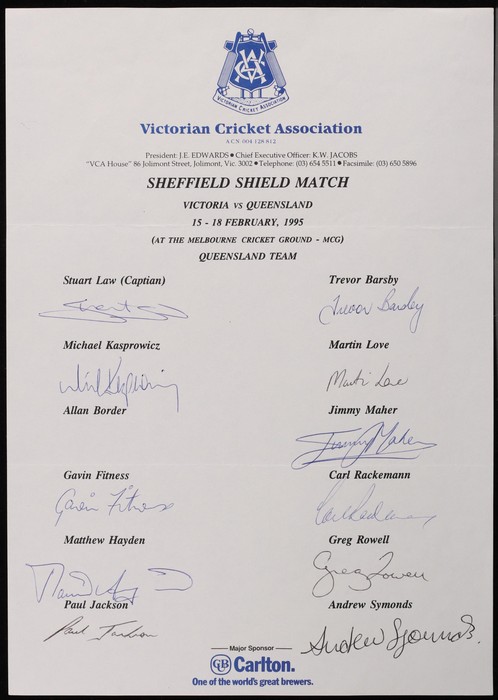 VCA
VICTORIAN CRICKET ASSOCIATION
Victorian Cricket Association
A.C.N. 004 128 812
President: J.E. EDWARDS ● Chief Executive Officer: K.W. JACOBS
"VCA House" 86 Jolimont Street, Jolimont, Vic. 3002 ● Telephone: (03) 654 5511 ● Facsimile: (03) 650 5896
SHEFFIELD SHIELD MATCH
VICTORIA vs QUEENSLAND
15 - 18 FEBRUARY, 1995
(AT THE MELBOURNE CRICKET GROUND - MCG)
QUEENSLAND TEAM
Stuart Law (Captian)
Trevor Barsby
Trevor Barsby
Michael Kasprowicz
Martin Love
Martin Love
Allan Border
Jimmy Maher
Jimmy Maher
Gavin Fitness
Carl Rackemann
Gavin Fitness
Carl Rackemann
Matthew Hayden
Greg Rowell
Greg Rowell
Paul Jackson
Andrew Symonds
Paul Jackson
Andrew Symonds.
Major Sponsor
CB Carlton.
One of the world's great brewers.